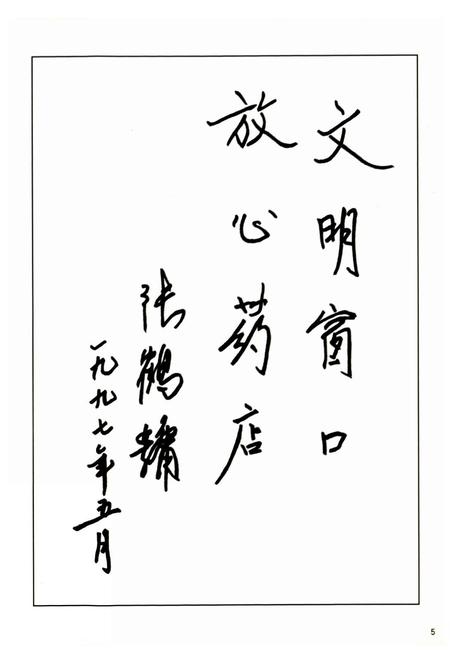 文明窗口
放心药店
张鹤镛
一九九七年五月
5